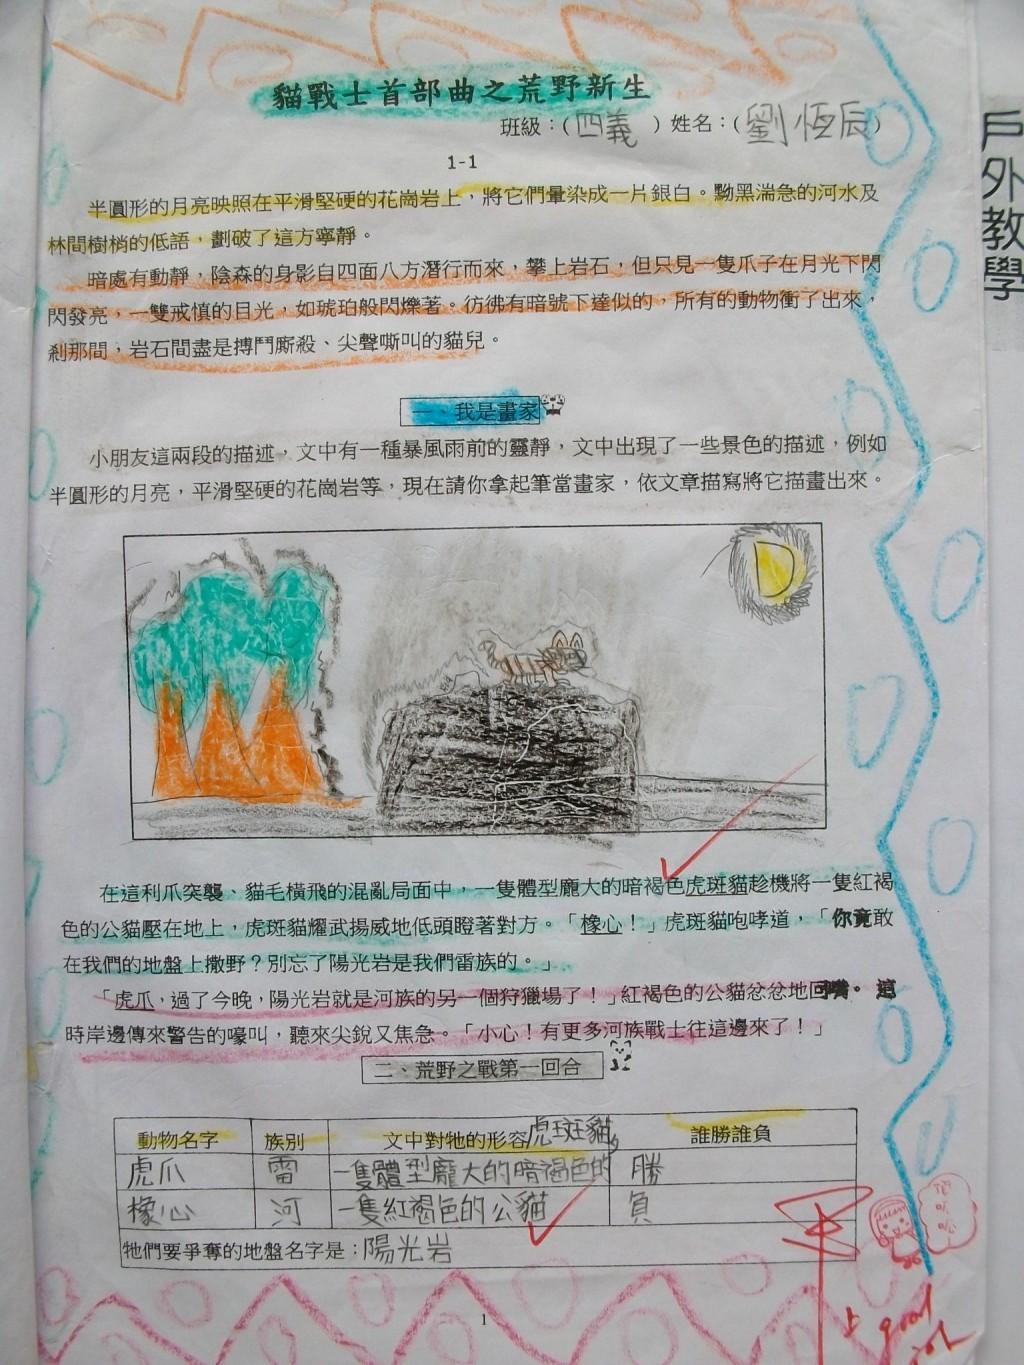 貓戰士首部曲之荒野新生
班級：(四義 ) 姓名：(劉恆辰)
1-1
半圓形的月亮映照在平滑堅硬的花崗岩上，將它們暈染成一片銀白。黝黑湍急的河水及
林間樹梢的低語，劃破了這方寧靜。
暗處有動靜，陰森的身影自四面八方潛行而來，攀上岩石，但只見一隻爪子在月光下閃
閃發亮，一雙戒慎的目光，如琥珀般閃爍著。彷彿有暗號下達似的，所有的動物衝了出來，
剎那間，岩石間盡是搏鬥廝殺、尖聲嘶叫的貓兒。
一、我是畫家
小朋友這兩段的描述，文中有一種暴風雨前的靈靜，文中出現了一些景色的描述，例如
半圓形的月亮，平滑堅硬的花崗岩等，現在請你拿起筆當畫家，依文章描寫將它描畫出來。
在這利爪突襲、貓毛橫飛的混亂局面中，一隻體型龐大的暗褐色虎斑貓趁機將一隻紅褐
色的公貓壓在地上，虎斑貓耀武揚威地低頭瞪著對方。「橡心！」虎斑貓咆哮道，「你竟敢
在我們的地盤上撒野？別忘了陽光岩是我們雷族的。」
「虎爪，過了今晚，陽光岩就是河族的另一個狩獵場了！」紅褐色的公貓忿忿地回嘴。這
時岸邊傳來警告的嚎叫，聽來尖銳又焦急。「小心！有更多河族戰士往這邊來了！」
二、荒野之戰第一回合
動物名字 族別 文中對牠的形容 誰勝誰負
虎爪 雷 一隻體型龐大的暗褐色的虎斑貓 勝
橡心 河 一隻紅褐色的公貓 負
牠們要爭奪的地盤名字是：陽光岩
1
上
good
戶外教學